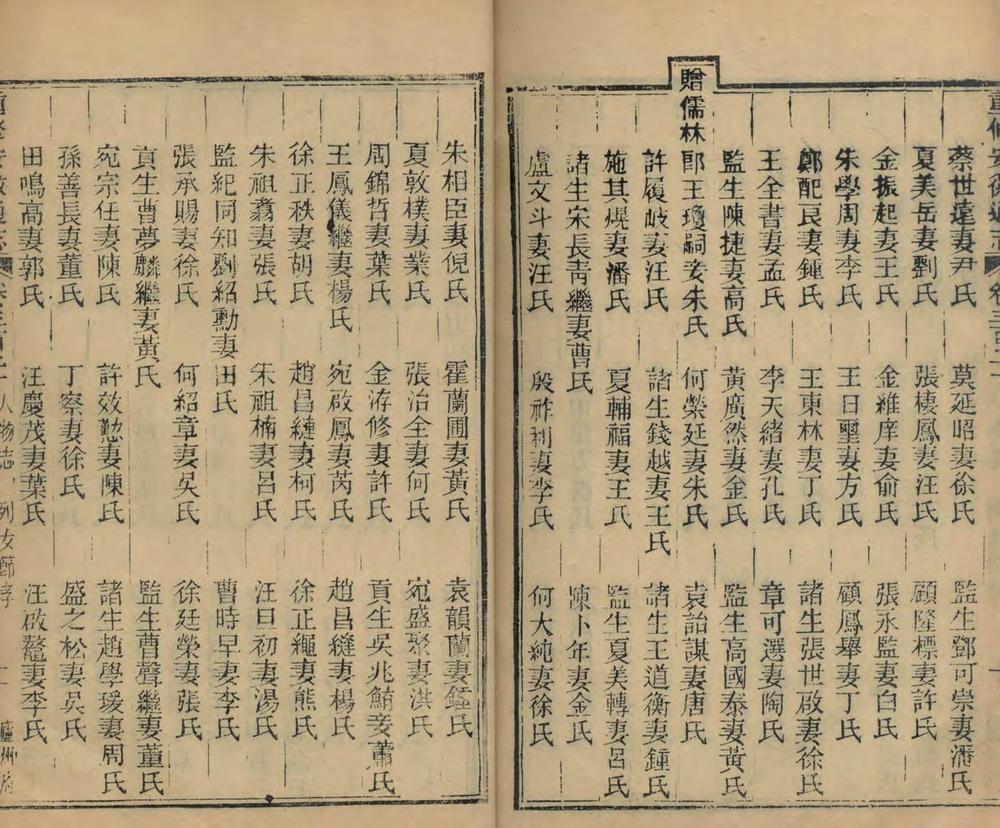 蔡世遠妻尹氏 莫延昭妻徐氏 監生鄧可崇妻潘氏
夏美岳妻劉氏 張棲鳳妻汪氏 顧隆標妻許氏
金振起妻王氏 金維庠妻俞氏 張永監妻白氏
朱學周妻李氏 王日璽妻方氏 顧鳳舉妻丁氏
鄭配艮妻鍾氏 王東林妻丁氏 諸生張世啟妻徐氏
王全書妻孟氏 李天緒妻孔氏 章可選妻陶氏
監生陳捷妻高氏 黃廣然妻金氏 監生高國泰妻黃氏
贈儒林郎王瓊嗣妾朱氏 何榮廷妻朱氏 袁詒謀妻唐氏
許履岐妻汪氏 諸生錢越妻王氏 諸生王道衡妻鍾氏
施其焜妻潘氏 夏輔福妻王氏 監生夏美轉妻呂氏
諸生宋長青繼妻曹氏 陳卜年妻金氏
盧文斗妻汪氏 殷祚利妻李氏 何大純妻徐氏
朱相臣妻倪氏 霍蘭圃妻黃氏 袁韻蘭妻鍾氏
夏敦樸妻業氏 張治全妻何氏 宛盛聚妻洪氏
周錦哲妻葉氏 金洊修妻許氏 貢生吳兆鮹妾蕭氏
王鳳儀繼妻楊氏 宛啟鳳妻芮氏 趙昌縫妻楊氏
徐正秩妻胡氏 趙昌縺妻柯氏 徐正繩妻熊氏
朱祖翥妻張氏 朱祖楠妻呂氏 汪日初妻湯氏
監紀同知劉紹勳妻田氏 曹時早妻李氏
張承賜妻徐氏 何紹章妻吳氏 徐廷榮妻張氏
貢生曹夢麟繼妻黃氏 監生曹聲繼妻董氏
宛宗任妻陳氏 許效懃妻陳氏 諸生趙學瑗妻周氏
孫善長妻董氏 丁寀妻徐氏 盛之松妻吳氏
田鳴高妻郭氏 汪慶茂妻葉氏 汪啟鼇妻李氏
人物志 列女節孝